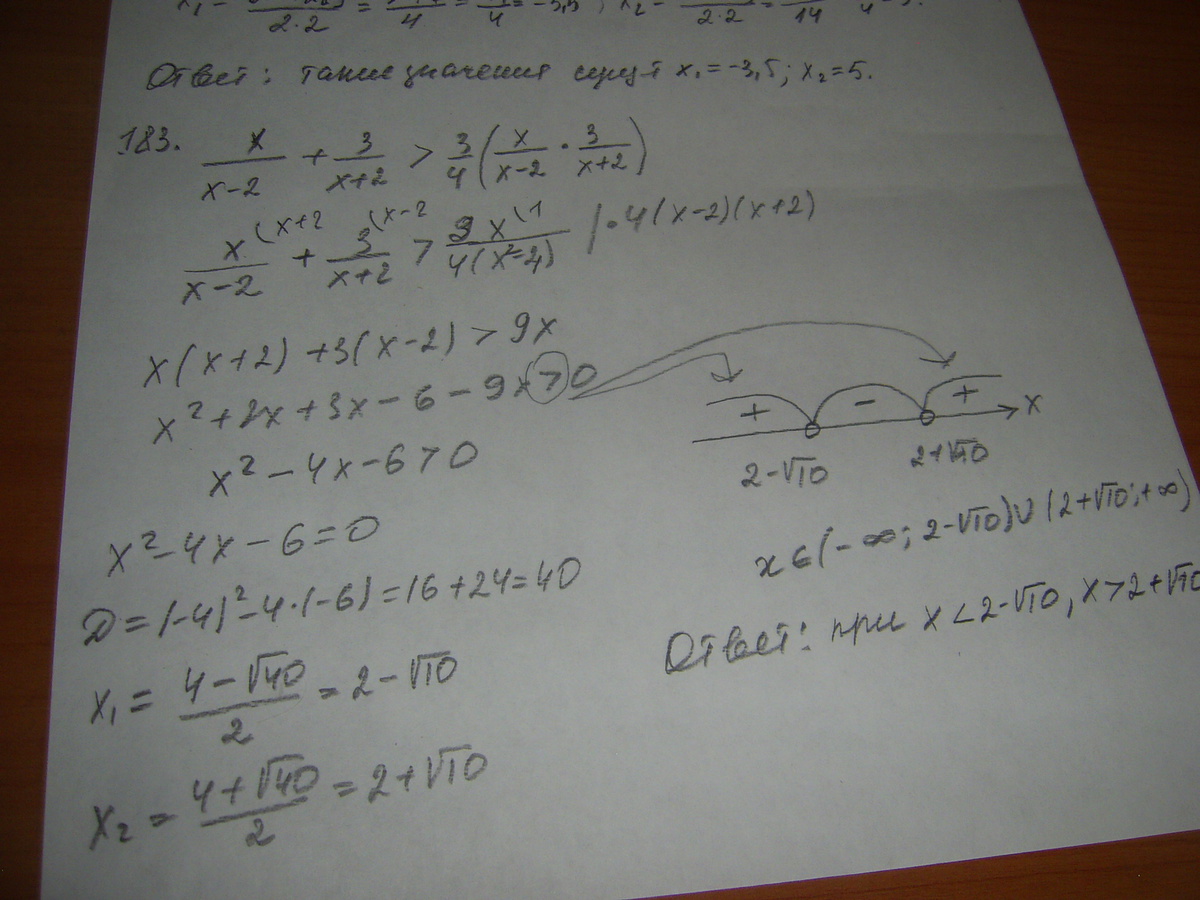 x₁ = ... / 2·2 = ... / 4 = ... / 4 = -3,5; x₂ = ... / 2·2 = ... / 14
Ответ: такие значения x₁=-3,5; x₂=5.
183. x/(x-2) + 3/(x+2) > 3/4 (x/(x-2) · 3/(x+2))
x/(x-2) (x+2 + 3/(x+2) (x-2 > 9x/(4(x²-4)) (1 | · 4(x-2)(x+2)
x(x+2) +3(x-2) > 9x
x²+2x+3x-6-9x>0
x²-4x-6>0
x²-4x-6=0
D=(-4)²-4·(-6)=16+24=40
x₁ = (4-√40)/2 = 2-√10
x₂ = (4+√40)/2 = 2+√10
+ - + x
2-√10 2+√10
x∈(-∞; 2-√10)∪(2+√10; +∞)
Ответ: при x<2-√10, x>2+√10